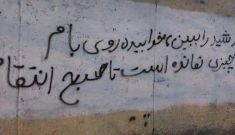 رشید را ببین، خوابیده روی بام
چیزی نمانده است تا صبح انتقا